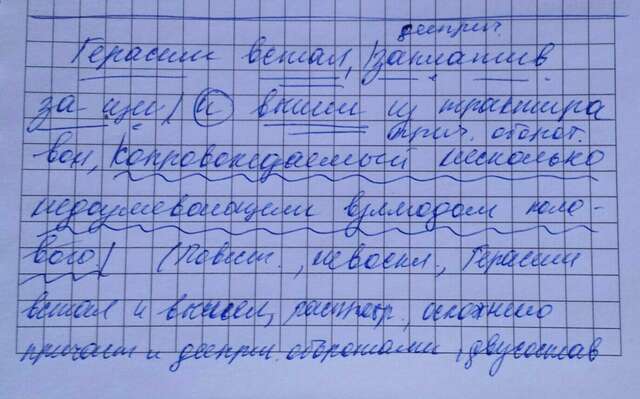 дееприч.
Герасим встал, /заплатив
за щи/ и вышел из трактира
прич. оборот.
вон, сопровождаемый несколько
недоумевающим взглядом поло-
вого./ (Повест., невоскл., Герасим
встал и вышел, распростр., осложнено
причаст и дееприч. оборотами, двусостав